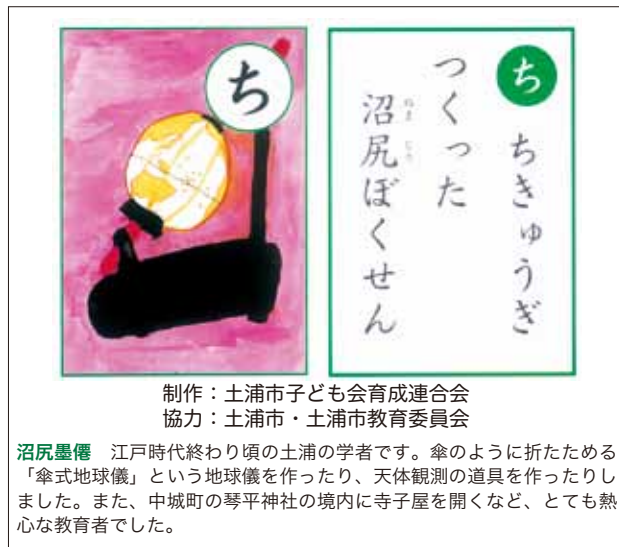 ち
ち
ちきゅうぎ
つくった
沼尻ぼくせん
ぬま じり
制作：土浦市子ども会育成連合会
協力：土浦市・土浦市教育委員会
沼尻墨僊　江戸時代終わり頃の土浦の学者です。傘のように折たためる
「傘式地球儀」という地球儀を作ったり、天体観測の道具を作ったりし
ました。また、中城町の琴平神社の境内に寺子屋を開くなど、とても熱
心な教育者でした。